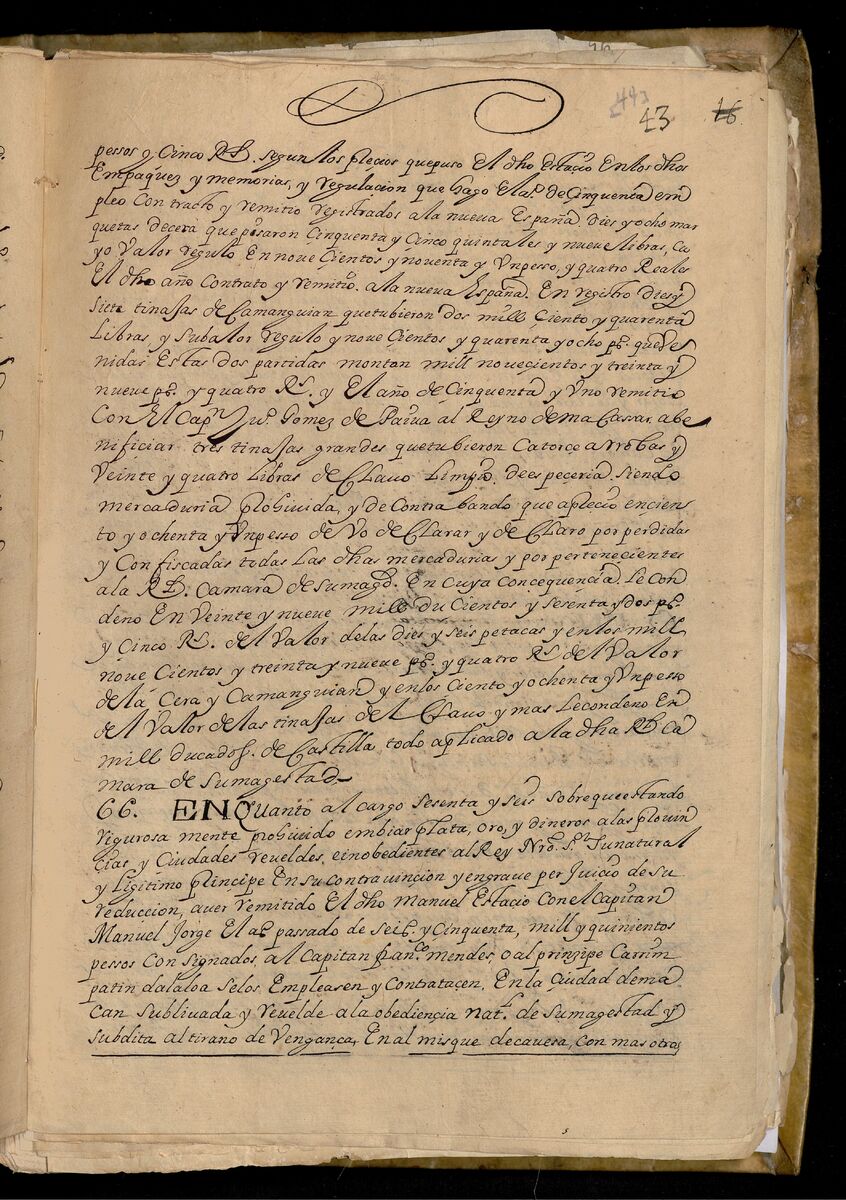 443
43 16
pessos y Cinco Rs. segun los plecios quepuso El dho Estacio En los dhos
Empaquez y memorias, y regulacion que hago El aº. de Cinquenta em
pleo Contracto y remitio registrados ala nueva España dies y ocho mar
quetas decera que pesaron Cinquenta y Cinco quintales y nueve libras, Cu
yo Valor regulo En noveçientos y noventa y Vn pesso, y quatro Reales
El dho año Contrato y remitio. ala nueva España. En registro dies y
siete tinajas de Camanguian quetubieron dos mill Çiento y quarenta
Libras, y Subalor regulo y nove Çientos y quarenta y ocho ps. que Ve
nidas Estas dos partidas montan mill noveçientos y treinta y
nueve ps. y quatro Rs. y El año de Cinquenta y Vno remitio
Con El Capn Ju. Gomez de Paiva al Reyno de maCassar abe
nificiar tres tinajas grandes quetubieron Catorçe arrobas y
Veinte y quatro Libras de CLavo Limpio. de especeria. siendo
mercaduria plohivida, y de Contrabando que aplecio encien
to yochenta y Vn pesso de Vo de CLarar y de CLaro por perdidas
y Confiscadas todas Las dhas mercadurias y por perteneçientes
ala Rl. Camara de sumagd. En Cuya Concequençia, Le Con
deno En Veinte y nueve mill duCientos y sesenta y dos ps.
y Cinco Rs. del Valor delas dies y seis petacas y en los mill
nove Cientos y treinta y nueve ps. y quatro Rs. del Valor
dela Cera y Camanguian y en los Ciento yochenta y Vn pesso
del Valor de las tinajas del CLavo y mas Lecondeno En
mill ducados. de Castilla todo aplicado a la dha Rl Ca
mara de sumagestad
66. ENQuanto al cargo sesenta y seis sobre que estando
rigurosa mente plohivido embiar plata, oro, y dineros alas plovin
çias y Ciudades reveldes, einobedientes al Rey Nro. Sr. sunatural
y Ligitimo plinçipe En su contravinçion y engrave per Juicio de su
reduccion, aver remitido El dho Manuel Estacio Con el Capitan
Manuel Jorge El aº passado de seis. y Cinquenta, mill y quinientos
pessos Consignados, al Capitan fran.co mendes, o al prinzipe Carrim
patindalaloa selos Empleasen y Contrataçen. En la Çiudad de ma
Can sublivada y revelde ala obediençia natl. de sumagestad y
subdita al tirano de Vengança, En al misque decavesa, con mas otro,